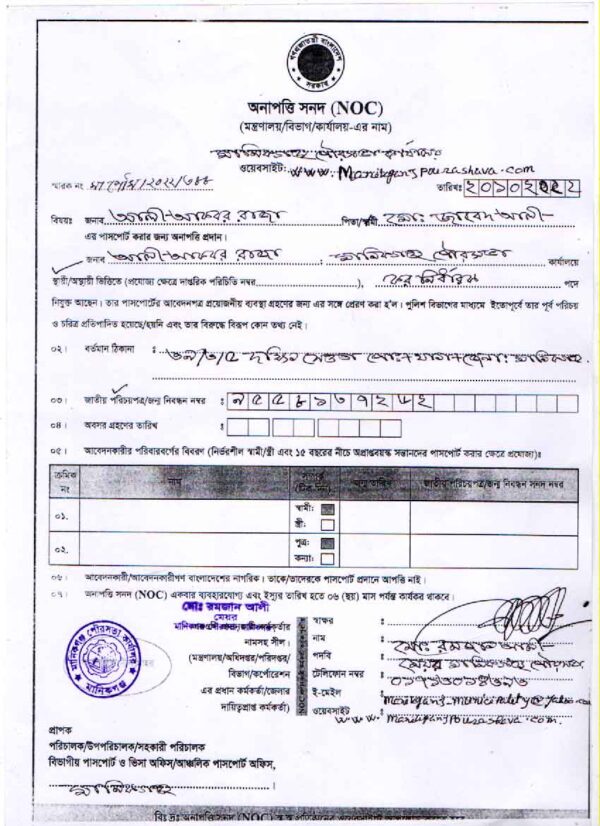 গণপ্রজাতন্ত্রী বাংলাদেশ
সরকার
অনাপত্তি সনদ (NOC)
(মন্ত্রণালয়/বিভাগ/কার্যালয়-এর নাম)
মানিকগঞ্জ পৌরসভা কার্যালয়
ওয়েবসাইট: www.Manikganjpourashava.com
স্মারক নং
তারিখঃ
বিষয়ঃ জনাব আলী-আকবর রাজা পিতা/স্বামী মোঃ জাবেদ আলী-
এর পাসপোর্ট করার জন্য অনাপত্তি প্রদান।
জনাব আলী-আকবর রাজা মানিকগঞ্জ পৌরসভা কার্যালয়ে
স্থায়ী/অস্থায়ী ভিত্তিতে (প্রযোজ্য ক্ষেত্রে দাপ্তরিক পরিচিতি নম্বর), কর নির্ধারক পদে
নিযুক্ত আছেন। তার পাসপোর্টের আবেদনপত্র প্রয়োজনীয় ব্যবস্থা গ্রহণের জন্য এর সঙ্গে প্রেরণ করা হ'ল। পুলিশ বিভাগের মাধ্যমে ইতোপূর্বে তার পূর্ব পরিচয়
ও চরিত্র প্রতিপাদিত হয়েছে/হয়নি এবং তার বিরুদ্ধে বিরূপ কোন তথ্য নেই।
০২। বর্তমান ঠিকানা :
০৩। জাতীয় পরিচয়পত্র/জন্ম নিবন্ধন নম্বর :
০৪। অবসর গ্রহণের তারিখ :
০৫। আবেদনকারীর পরিবারবর্গের বিবরণ (নির্ভরশীল স্বামী/স্ত্রী এবং ১৫ বছরের নীচে অপ্রাপ্তবয়স্ক সন্তানদের পাসপোর্ট করার ক্ষেত্রে প্রযোজ্য)ঃ
ক্রমিক নং নাম সম্পর্ক (টিক দিন) জন্ম তারিখ জাতীয় পরিচয়পত্র/জন্ম নিবন্ধন সনদ নম্বর
০১. স্বামী:
স্ত্রী:
০২. পুত্র:
কন্যা:
০৬। আবেদনকারী/আবেদনকারীগণ বাংলাদেশের নাগরিক। তাকে/তাদেরকে পাসপোর্ট প্রদানে আপত্তি নাই।
০৭। অনাপত্তি সনদ (NOC) একবার ব্যবহারযোগ্য এবং ইস্যুর তারিখ হতে ০৬ (ছয়) মাস পর্যন্ত কার্যকর থাকবে।
মোঃ রমজান আলী
মেয়র
নামসহ সীল।
(মন্ত্রণালয়/অধিদপ্তর/পরিদপ্তর/
বিভাগ/কর্পোরেশন
এর প্রধান কর্মকর্তা/জেলার
দায়িত্বপ্রাপ্ত কর্মকর্তা)
মানিকগঞ্জ পৌরসভা কার্যালয়
মানিকগঞ্জ
স্বাক্ষর :
নাম : মোঃ রমজান আলী
পদবি : মেয়র মানিকগঞ্জ পৌরসভা
টেলিফোন নম্বর :
ই-মেইল :
ওয়েবসাইট : www.manikganjpourashava.com.
প্রাপক
পরিচালক/উপপরিচালক/সহকারী পরিচালক
বিভাগীয় পাসপোর্ট ও ভিসা অফিস/আঞ্চলিক পাসপোর্ট অফিস,
মানিকগঞ্জ